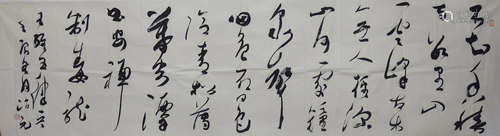 不知香積
寺數里入
雲峰古木
無人徑深
山何處鐘
泉聲咽
危石日色
冷青松薄
暮空潭
曲安禪
制毒龍
王維